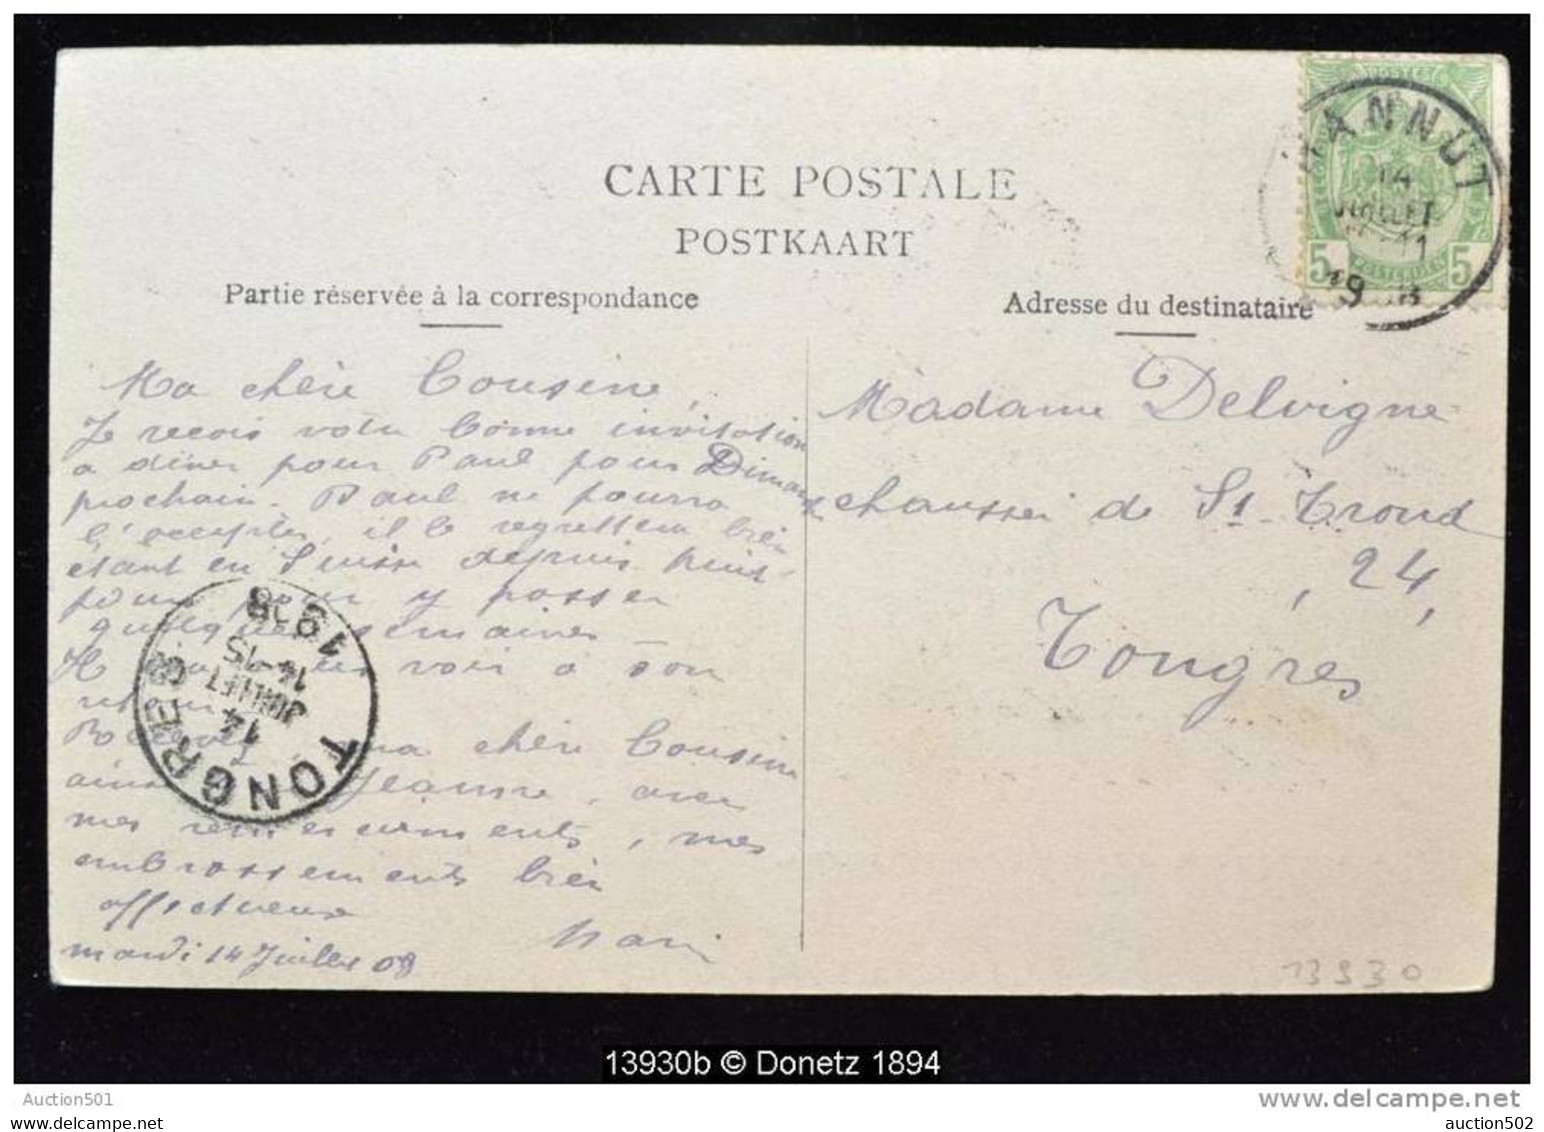 CARTE POSTALE
POSTKAART
Partie réservée à la correspondance
Adresse du destinataire
HANNUT
14
JUILLET
11
19 8
5 POSTERIJEN 5
Ma chère Cousine,
Je recois votre bonne invitation
a diner pour Paul pour Dimanch
prochain. Paul ne pourra
l'accepter, il le regrettera bien
étant en Suisse depuis huit
pour y passer
quelques semaines —
voir a son
retour
ma chère Cousine
Jeanne, avec
mes remerciements, mes
embrassements bien
affectueux
Marie
mardi 14 Juillet 08
Madame Delvigne
chaussée de St-Trond
, 24,
Tongres
TONGRES
14
JUILLET
14-15
1908
13930
13930b © Donetz 1894
Auction501
delcampe.net
auction502
auction502